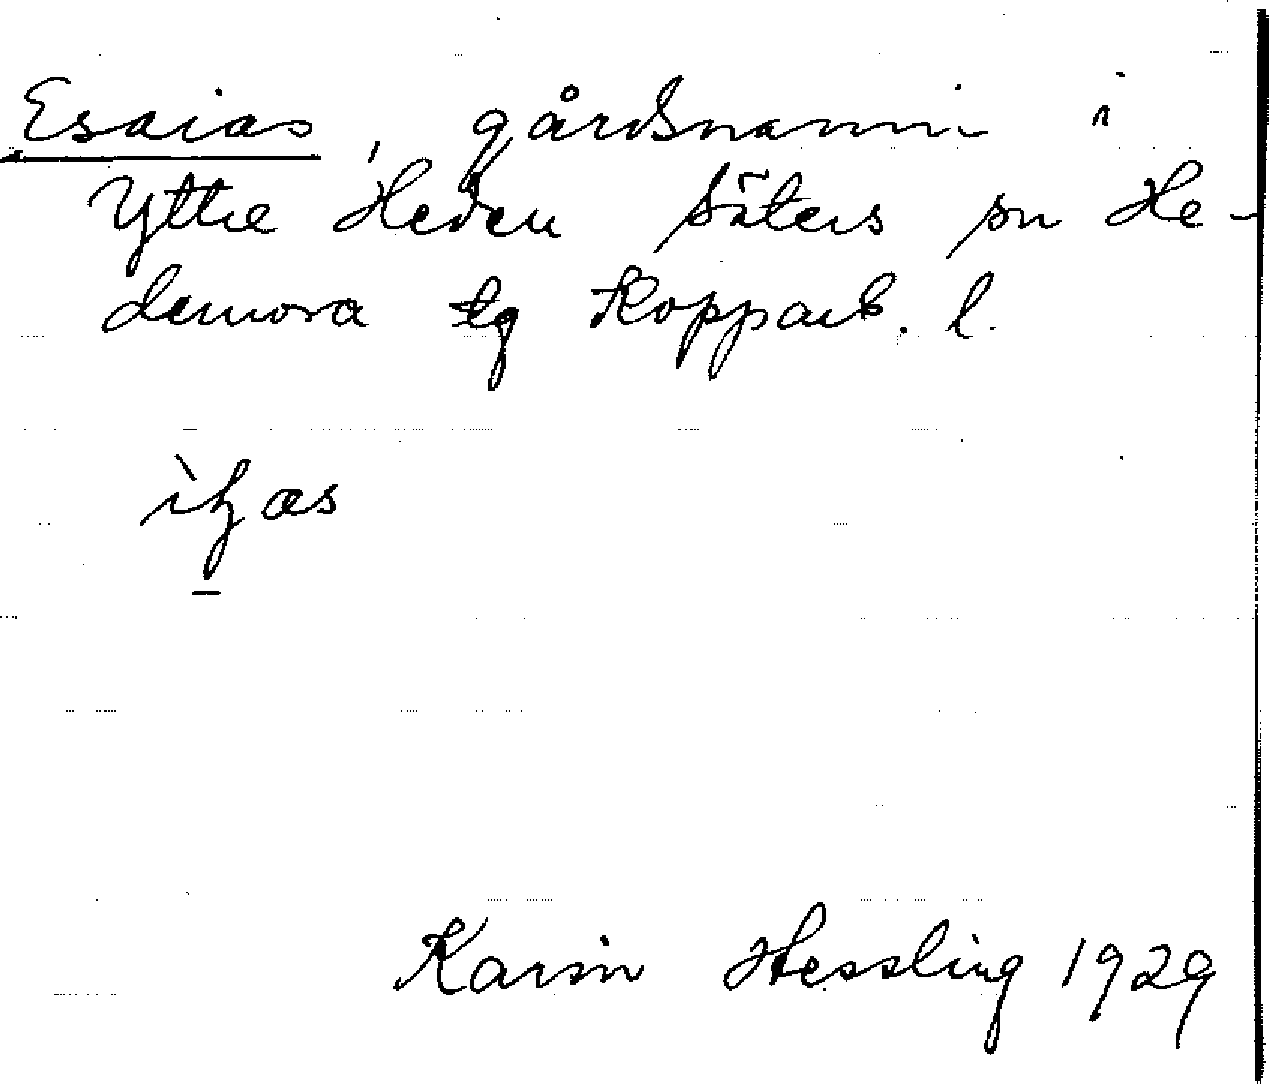 Esaias, gårdsnamn i
Yttre Heden Säters sn He-
demora tg Kopparb. l.
Karin Hessling 1929